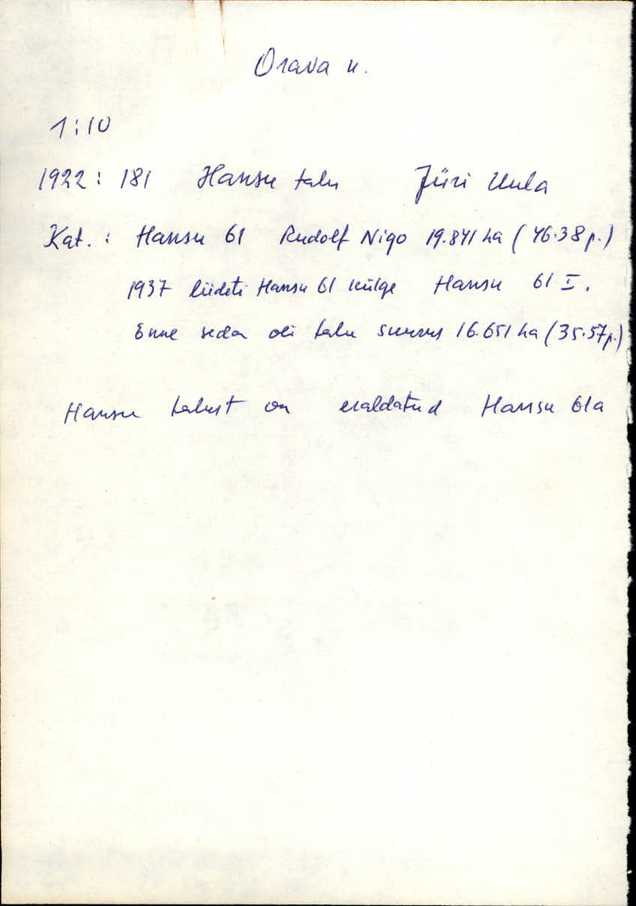 Orava k.
1:10
1922: 181 Hansu talu Jüri Uula
Kat.: Hansu 61 Rudolf Nigo 19.841 ha (46.38 p.)
1937 liideti Hansu 61 külge Hansu 61 I.
Enne seda oli talu suurus 16.651 ha (35.57 p.)
Hansu talust on eraldatud Hansu 61a